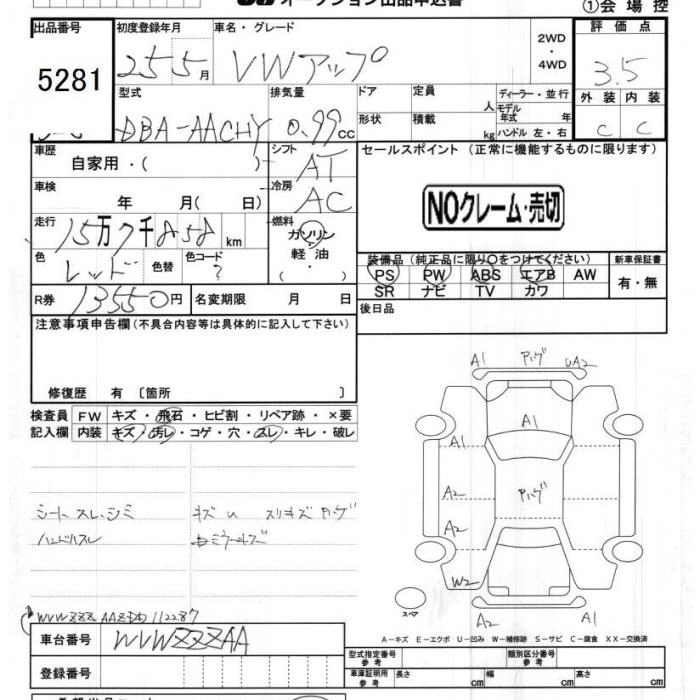 オークション出品申込書
①会場控
出品番号 5281
初度登録年月 25 5月
車名・グレード VWアップ
2WD・4WD
評価点 3.5
外装 C 内装 C
型式 DBA-AACHY
排気量 0.99cc
ドア 定員 人
形状 積載 kg
ディーラー・並行
モデル年式 年
ハンドル 左・右
車歴 自家用・( )
シフト AT
冷房 AC
車検 年 月( 日)
セールスポイント(正常に機能するものに限ります)
NOクレーム・売切
走行 15万7千858km
燃料 ガソリン・軽油・( )
色 レッド 色替 色コード ?
装備品(純正品に限り○をつけてください)
PS PW ABS エアB AW
SR ナビ TV カワ
新車保証書 有・無
R券 13550円 名変期限 月 日
後日品
注意事項申告欄(不具合内容等は具体的に記入して下さい)
修復歴 有〔箇所 〕
検査員記入欄
FW キズ・飛石・ヒビ割・リペア跡・×要
内装 キズ・汚レ・コゲ・穴・スレ・キレ・破レ
シートスレ、シミ キズU スリキズ ハゲ
ハンドルスレ
A1 ハゲ UA2
A1
A1
A2 ハゲ
A2
W2
A2 A1
スペア
WVWZZZ
車台番号 WVWZZZAA
登録番号
A-キズ E-エクボ U-凹み W-補修跡 S-サビ C-腐食 XX-交換済
型式指定番号 参考 類別区分番号 参考
車庫証明用 参考 長さ cm 幅 cm 高さ cm